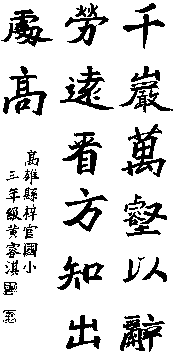 千巖萬壑以辭
勞遠看方知出
處高
高雄縣梓官國小
三年級黃淇